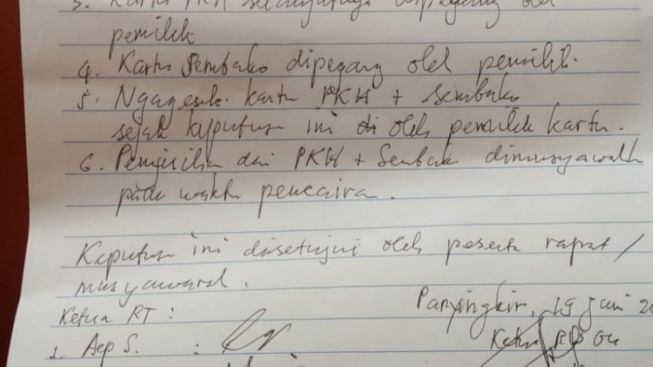 3. Kartu PKH selanjutnya dipegang oleh
pemilik
4. Kartu Sembako dipegang oleh pemilik.
5. Ngagesek kartu PKH + Sembako
sejak keputusan ini di oleh pemilik kartu.
6. Penyisihan dari PKH + Sembako dimusyawarah
pada waktu pencairan.
Keputusan ini disetujui oleh peserta rapat /
musyawarah.
Ketua RT :
Panyingkir, 19 Juni 20
1. Aep S. :
Ketua 04